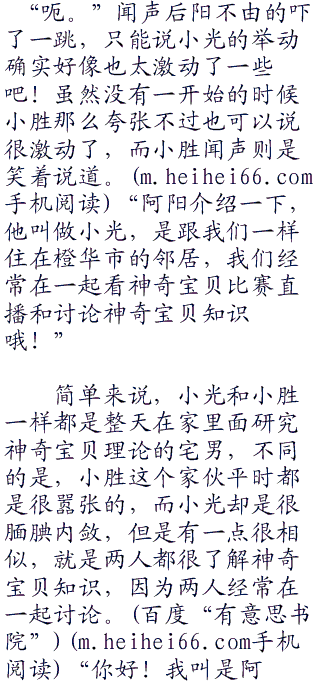 “呃。”闻声后阳不由的吓
了一跳，只能说小光的举动
确实好像也太激动了一些
吧！虽然没有一开始的时候
小胜那么夸张不过也可以说
很激动了，而小胜闻声则是
笑着说道。(m.heihei66.com
手机阅读)“阿阳介绍一下，
他叫做小光，是跟我们一样
住在橙华市的邻居，我们经
常在一起看神奇宝贝比赛直
播和讨论神奇宝贝知识
哦！”
简单来说，小光和小胜
一样都是整天在家里面研究
神奇宝贝理论的宅男，不同
的是，小胜这个家伙平时都
是很嚣张的，而小光却是很
腼腆内敛，但是有一点很相
似，就是两人都很了解神奇
宝贝知识，因为两人经常在
一起讨论。(百度“有意思书
院”)(m.heihei66.com手机
阅读)“你好！我叫是阿